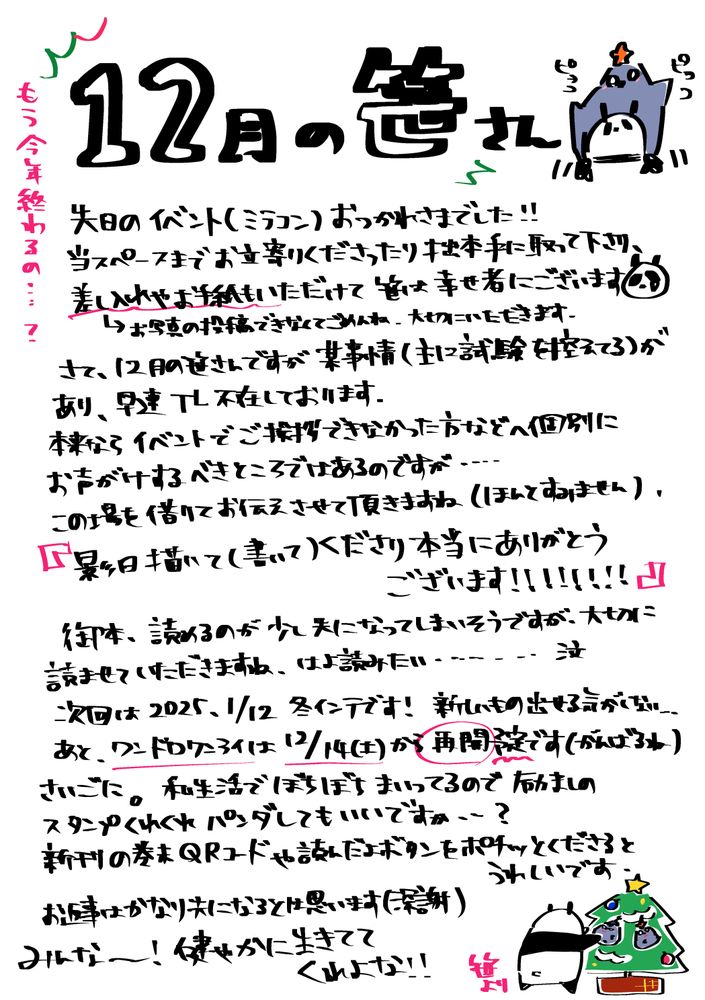 12月の笹さん
ピっ
ピっっ
もう今年終わるの…?
先日のイベント(ミラコン)おつかれさまでした!!
当スペースまでお立寄りくださったり拙本手に取って下さり、
差し入れやお手紙もいただけて笹は幸せ者にございます
↳お写真の投稿できなくてごめんね.大切にいただきます.
さて、12月の笹さんですが某事情(主に試験を控えてる)が
あり、早速TL不在しております.
本来ならイベントでご挨拶できなかった方などへ個別に
お声がけするべきところではあるのですが‥‥
この場を借りてお伝えさせて頂きますね(ほんとすみません).
『影日描いて(書いて)くださり本当にありがとう
ございます!!!!!!!!』
御本、読めるのが少し先になってしまいそうですが、大切に
読ませていただきますね、はよ読みたい‥‥‥‥泣
次回は2025、1/12 冬インテです! 新しいもの出せる気がしない…
あと、ワンドロワンライは12/14(土)から再開予定です(がんばるね)
さいごに。私生活でぼちぼちまいってるので励ましの
スタンプくれくれパンダしてもいいですか‥?
新刊の巻末QRコードや読んだよボタンをポチッとくださると
うれしいです.
お返事はかなり先になるとは思います(深謝)
みんな〜!健やかに生きてて
くれよな!!
笹より